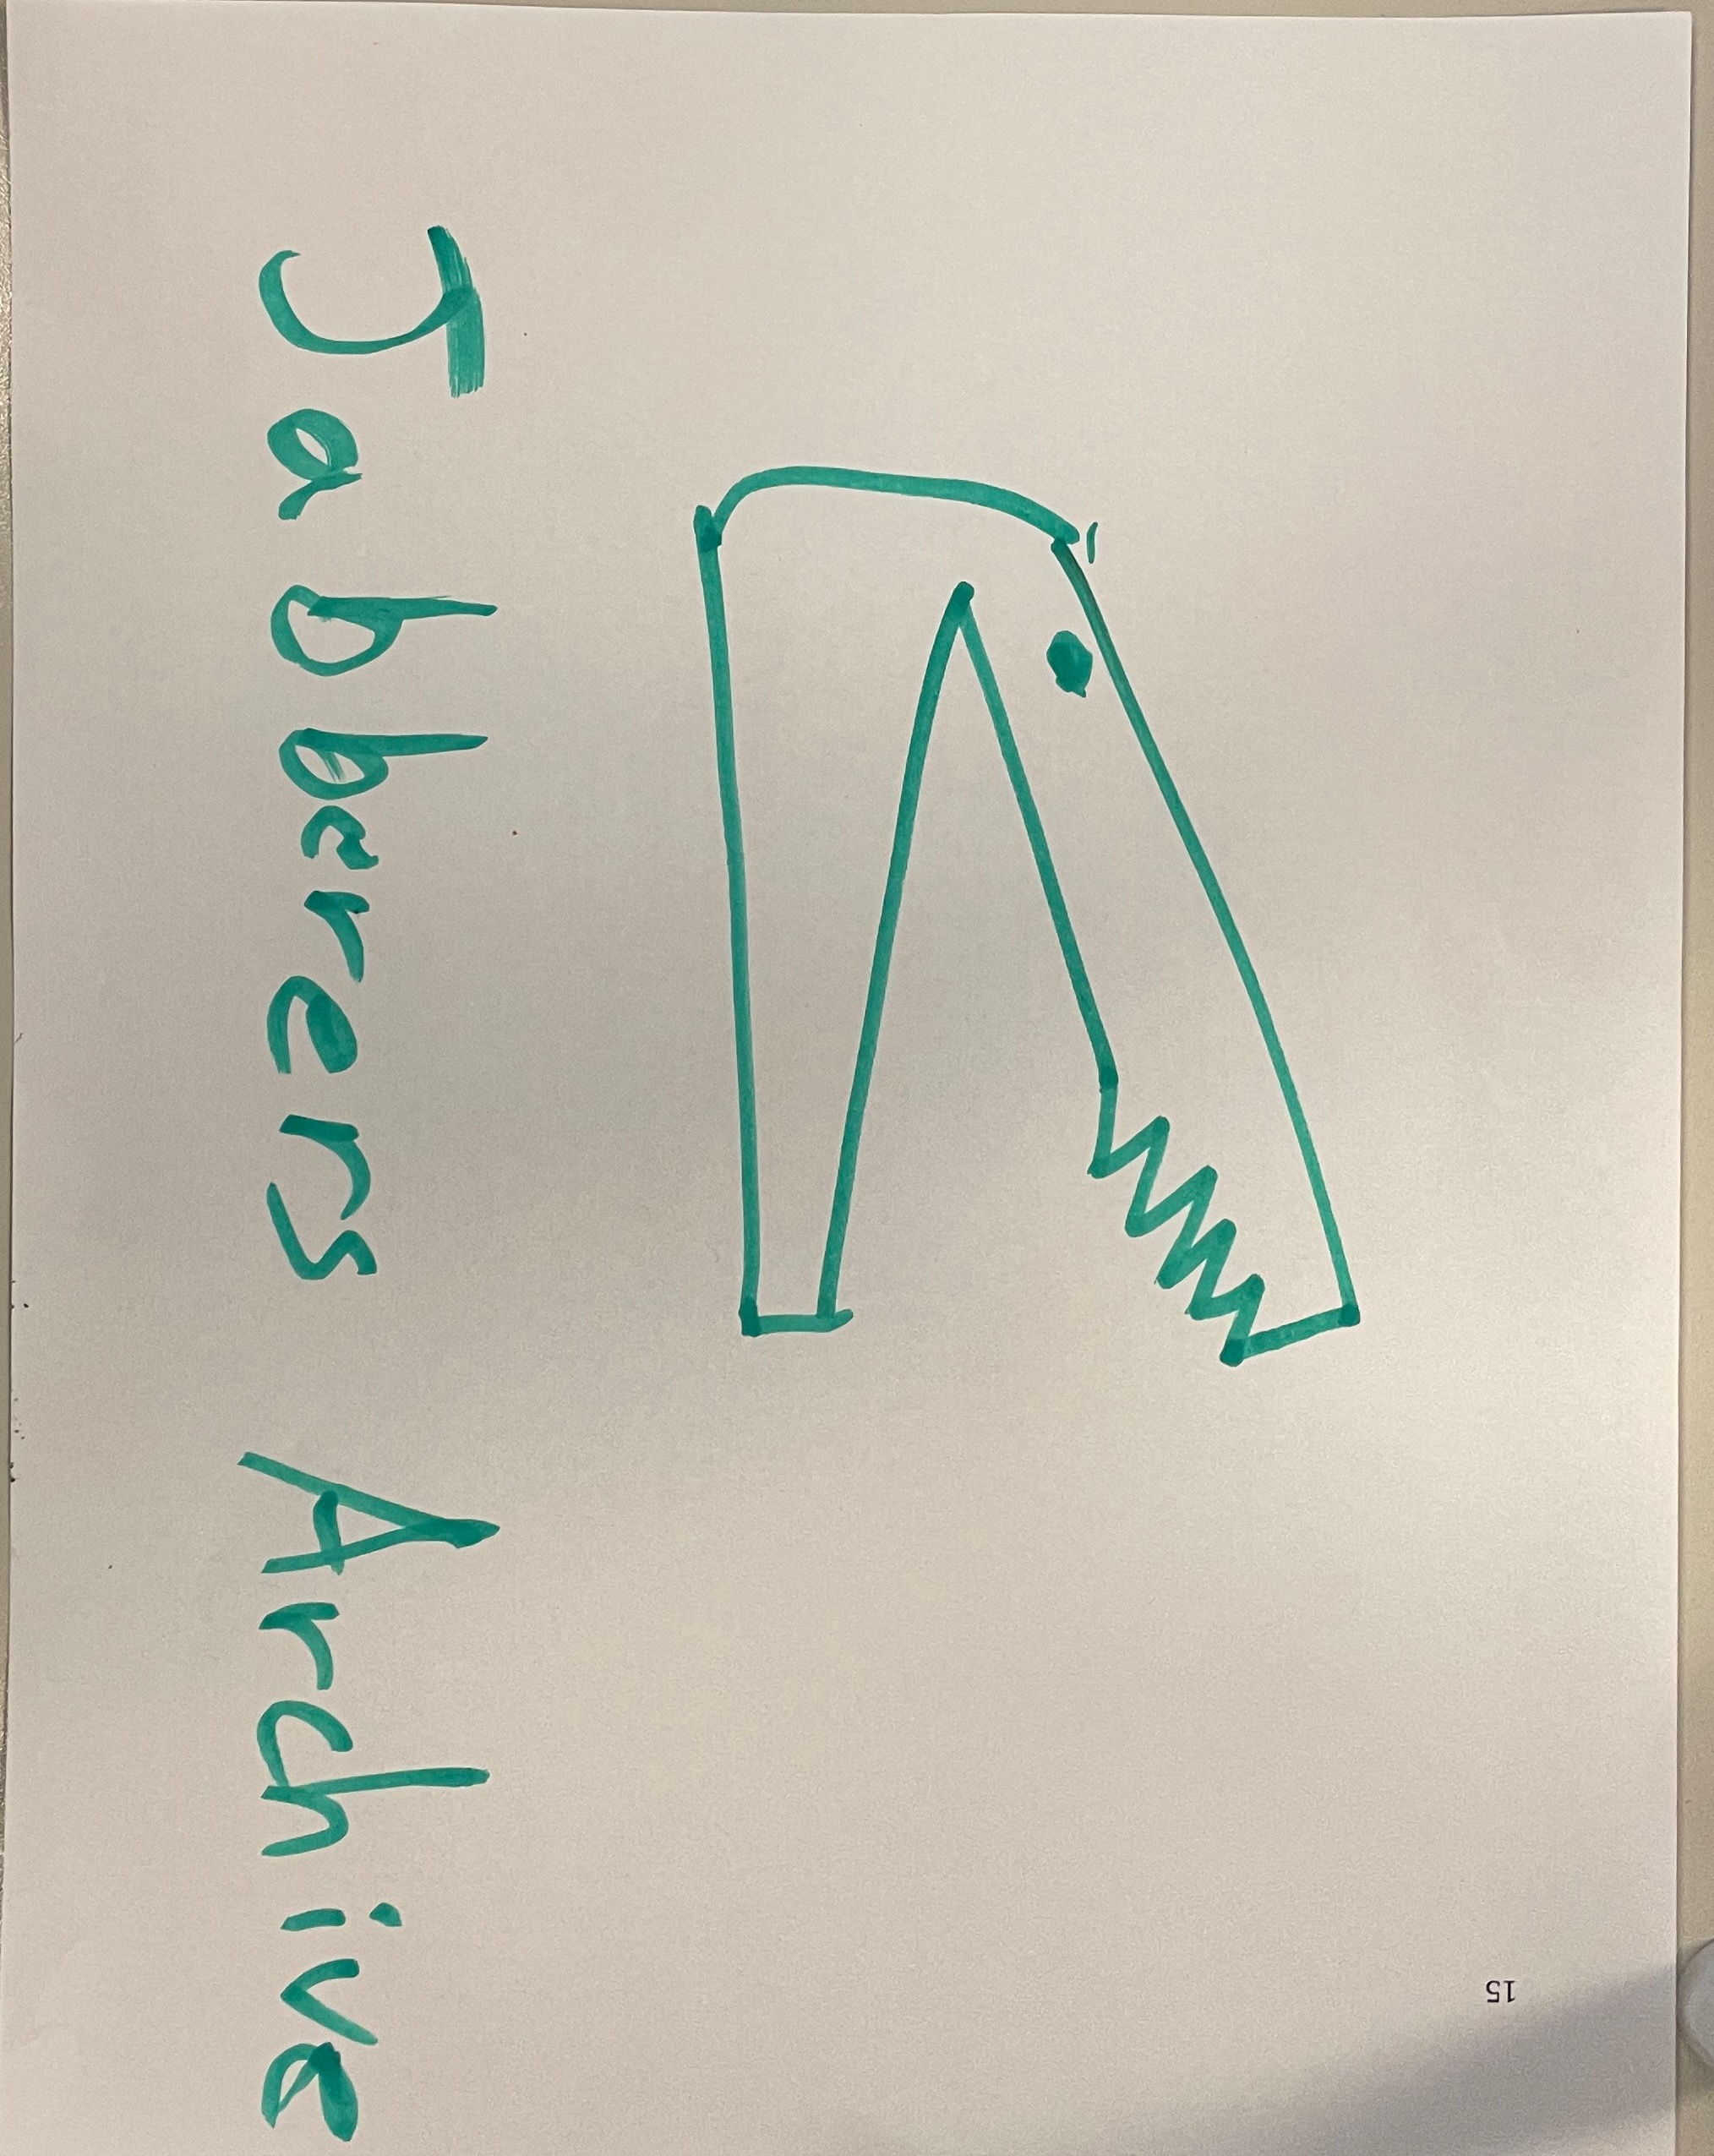 Jabberers Archive
15